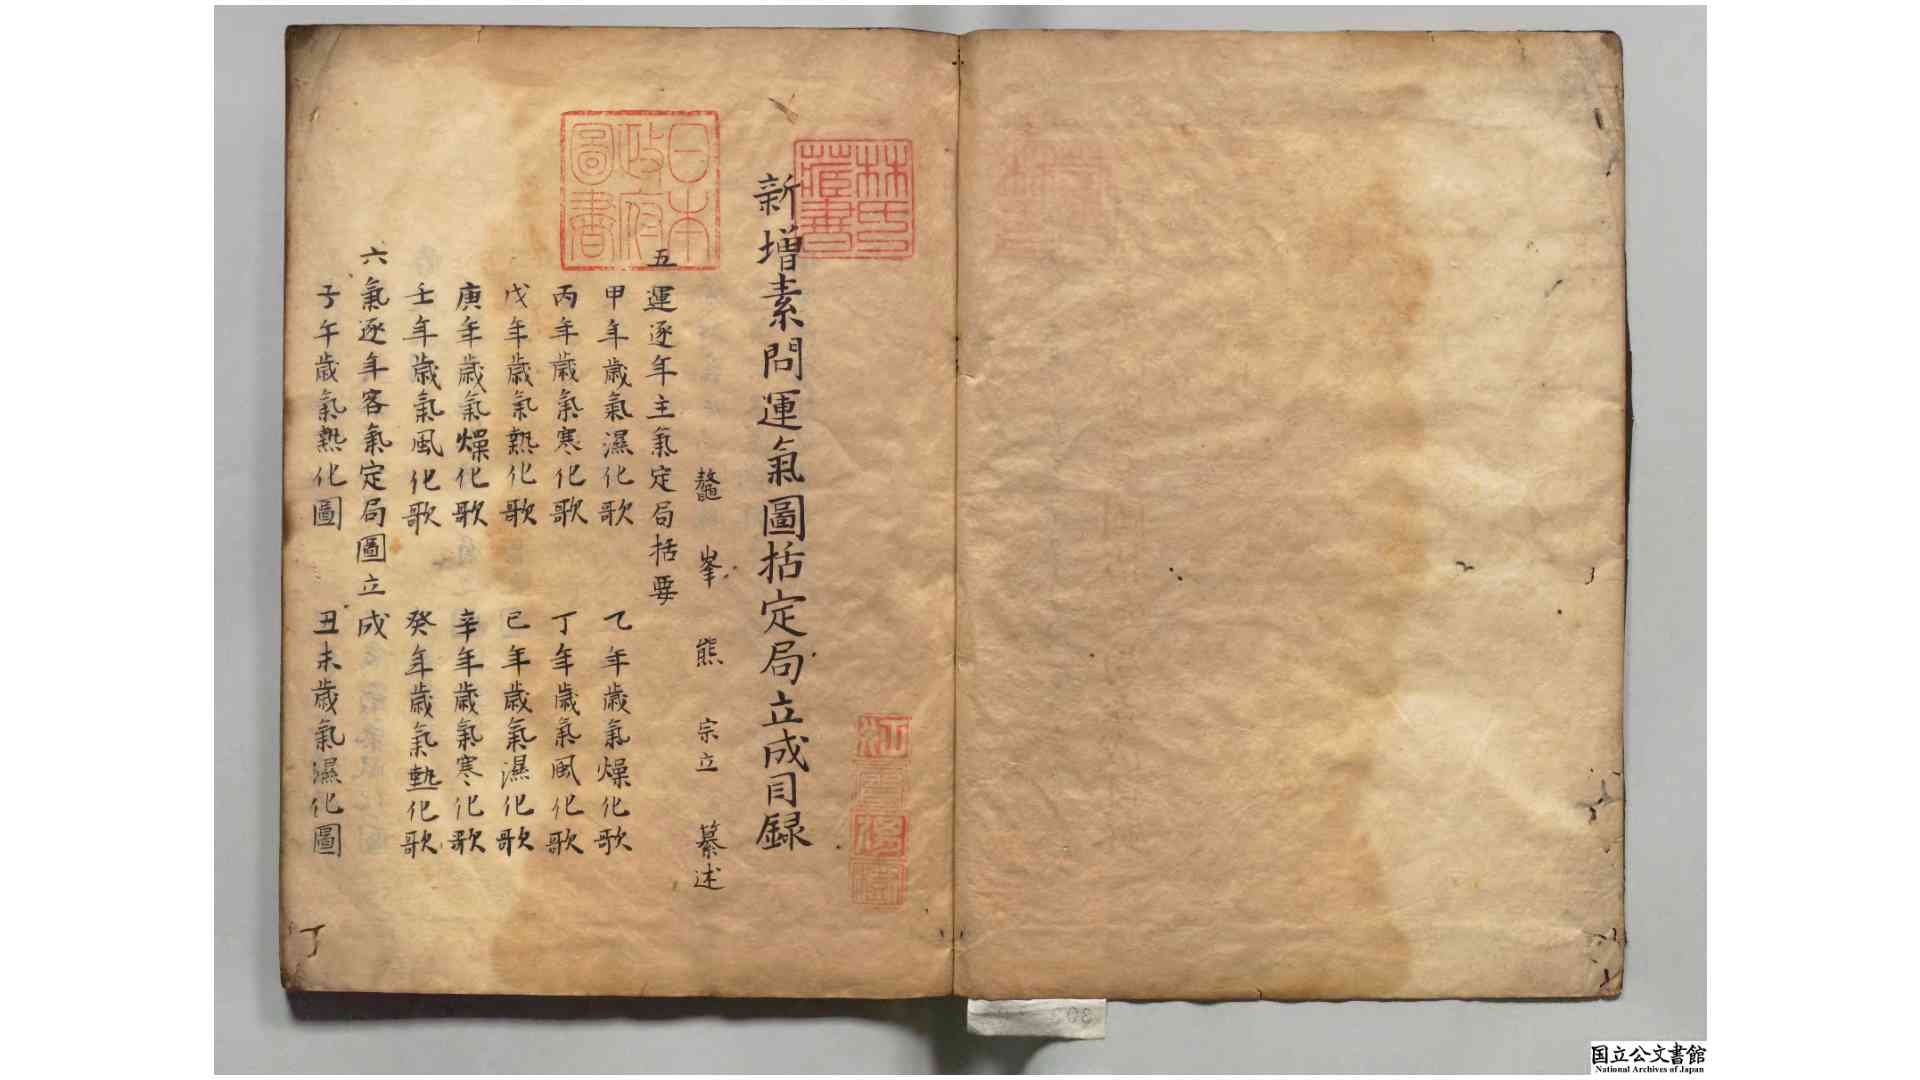 新增素問運氣圖括定局立成目録
鼇峯熊宗立纂述
五運逐年主氣定局括要
甲年歲氣濕化歌 乙年歲氣燥化歌
丙年歲氣寒化歌 丁年歲氣風化歌
戊年歲氣熱化歌 已年歲氣濕化歌
庚年歲氣燥化歌 辛年歲氣寒化歌
壬年歲氣風化歌 癸年歲氣熱化歌
六氣逐年客氣定局圖立成
子午歲氣熱化圖 丑未歲氣濕化圖
丁
林氏藏書
日本政府圖書
国立公文書館
National Archives of Japan